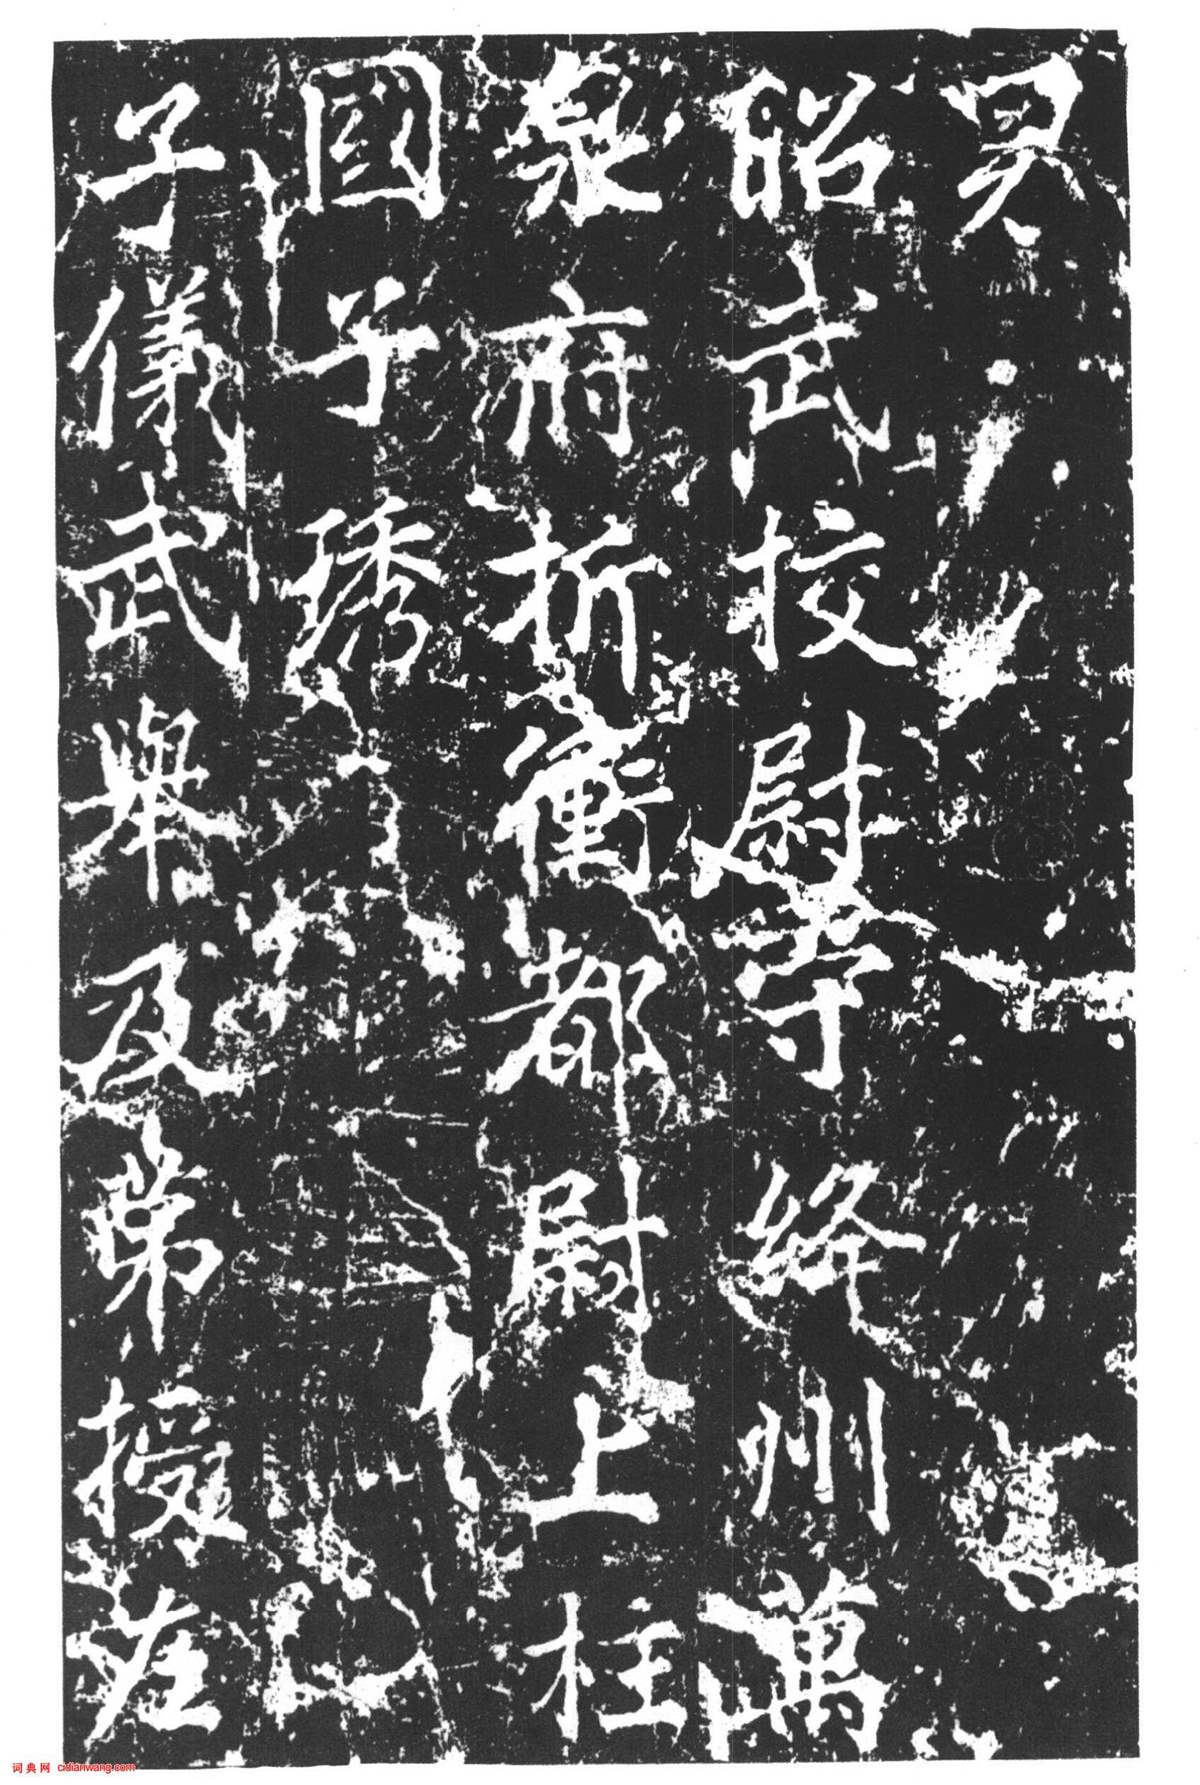 昊
昭武校尉守絳州萬
泉府折衝都尉上柱
國子琇
子儀武舉及第授左
词典网 cidianwang.com